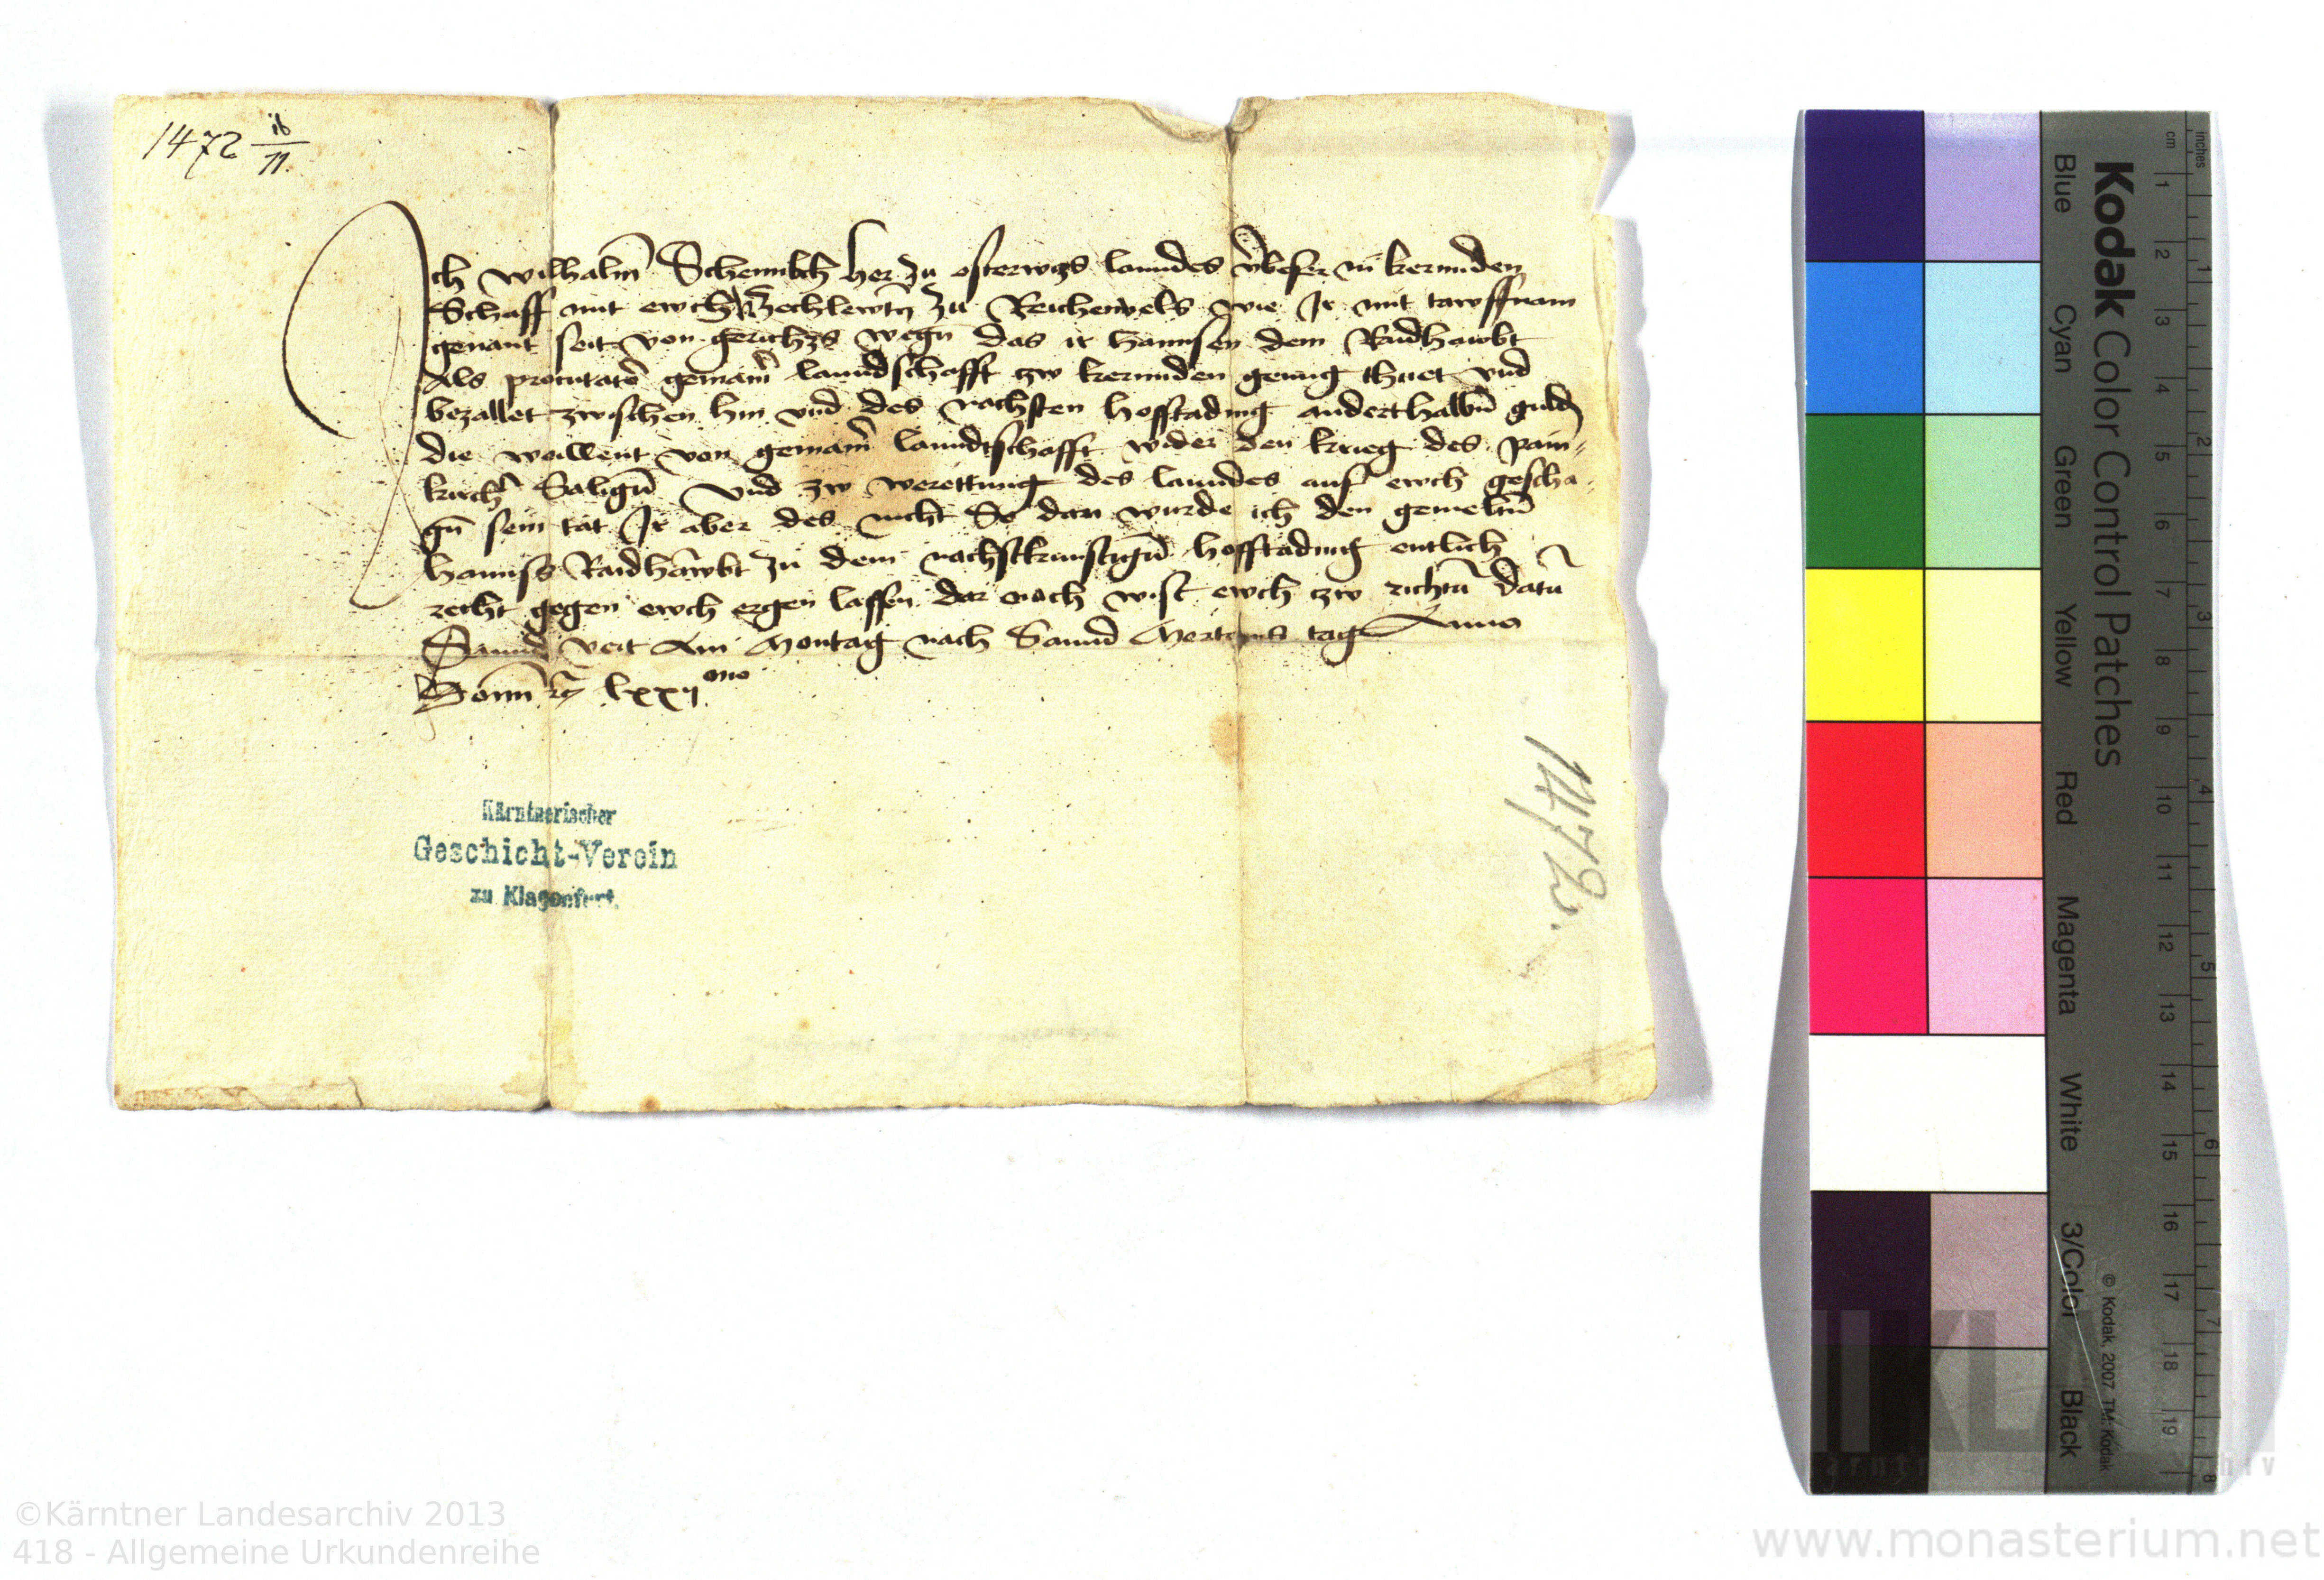 1472 16/11.
Ich Wilhalm Schennkch her zu osterwizs lanndes v̄weser in kernnden
Schaff mit ewch Zechlewtn zu Reichenuels wie Ir mit tawffnam
genant seit von gerichczs wegn̄ das ir hannsen dem Raidhawbt
Als procuratē gemain̄ lanndschafft zw kernnden genug thuet vnd
bezallet zwischen hin vnd des nachsten hofftading anderthalbn̄ guldn̄
die weillent von gemain̄ lanndtschafft wider den krieg des pain-
kirchē Salign̄ vnd zw werettung des lanndes auf ewch gescha-
gn̄ sein tat Ir aber des nicht So dan wurde ich den gemeltn̄
hannss Raidhawbt zu dem nachstkunftign̄ hofftading entlich
recht gegen ewch ergen lassen dar nach wist ewch zw richtn̄ datū
Sannd veit Am Montag nach Sannd Merteins tag Anno
Domī rc lxxijmo
Kärntnerischer
Geschicht-Verein
zu Klagenfurt.
1472.
Kodak Color Control Patches
Blue Cyan Green Yellow Red Magenta White 3/Color Black
© Kodak, 2007 TM: Kodak
inches 1 2 3 4 5 6 7 8
cm 1 2 3 4 5 6 7 8 9 10 11 12 13 14 15 16 17 18 19
©Kärntner Landesarchiv 2013
418 - Allgemeine Urkundenreihe
www.monasterium.net